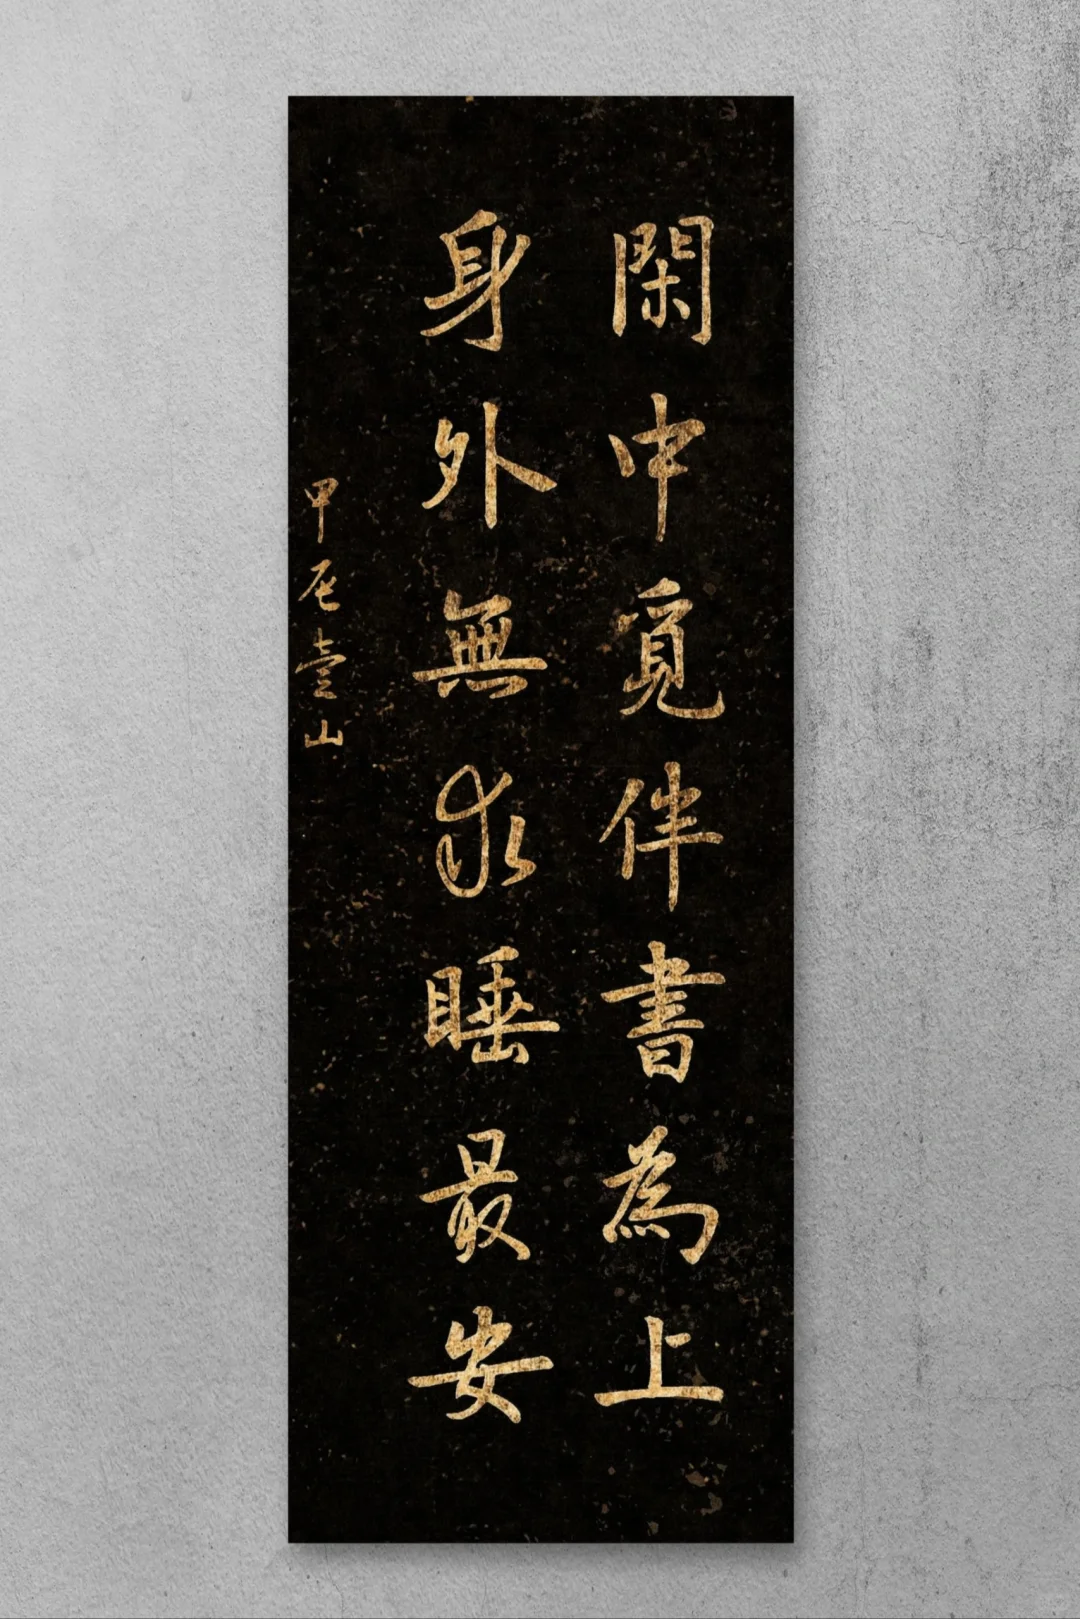 閑中覓伴書為上
身外無求睡最安
甲辰壹山